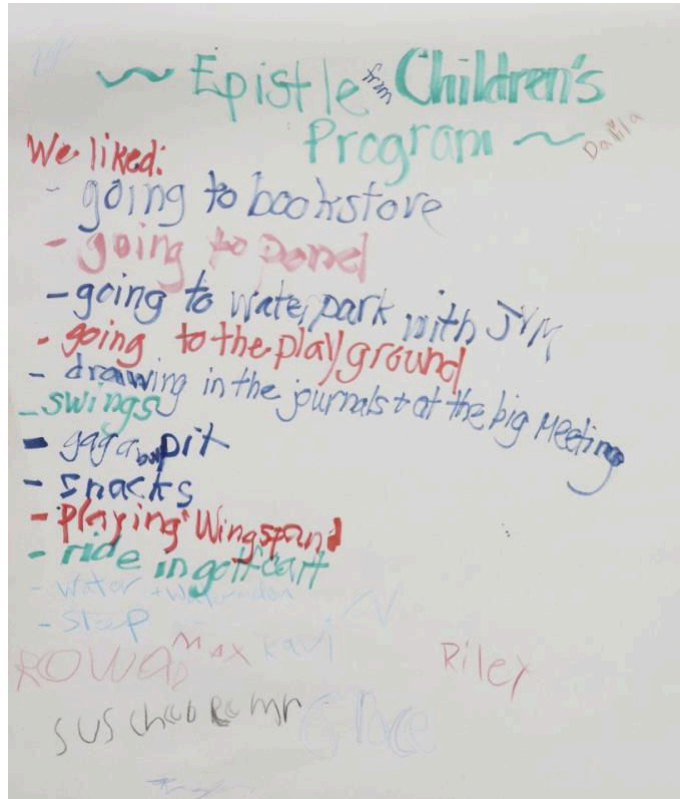 ~ Epistle from Children's
Program ~ Dahlia
We liked:
- going to bookstore
- going to pond
- going to water park with JYM
- going to the playground
- drawing in the journals + at the big Meeting
- swings
- gaga ball pit
- snacks
- playing Wingspand
- ride in golf cart
- water + watermelon
- sleep
ROWAN Max Kavi
Riley
sus
Grace